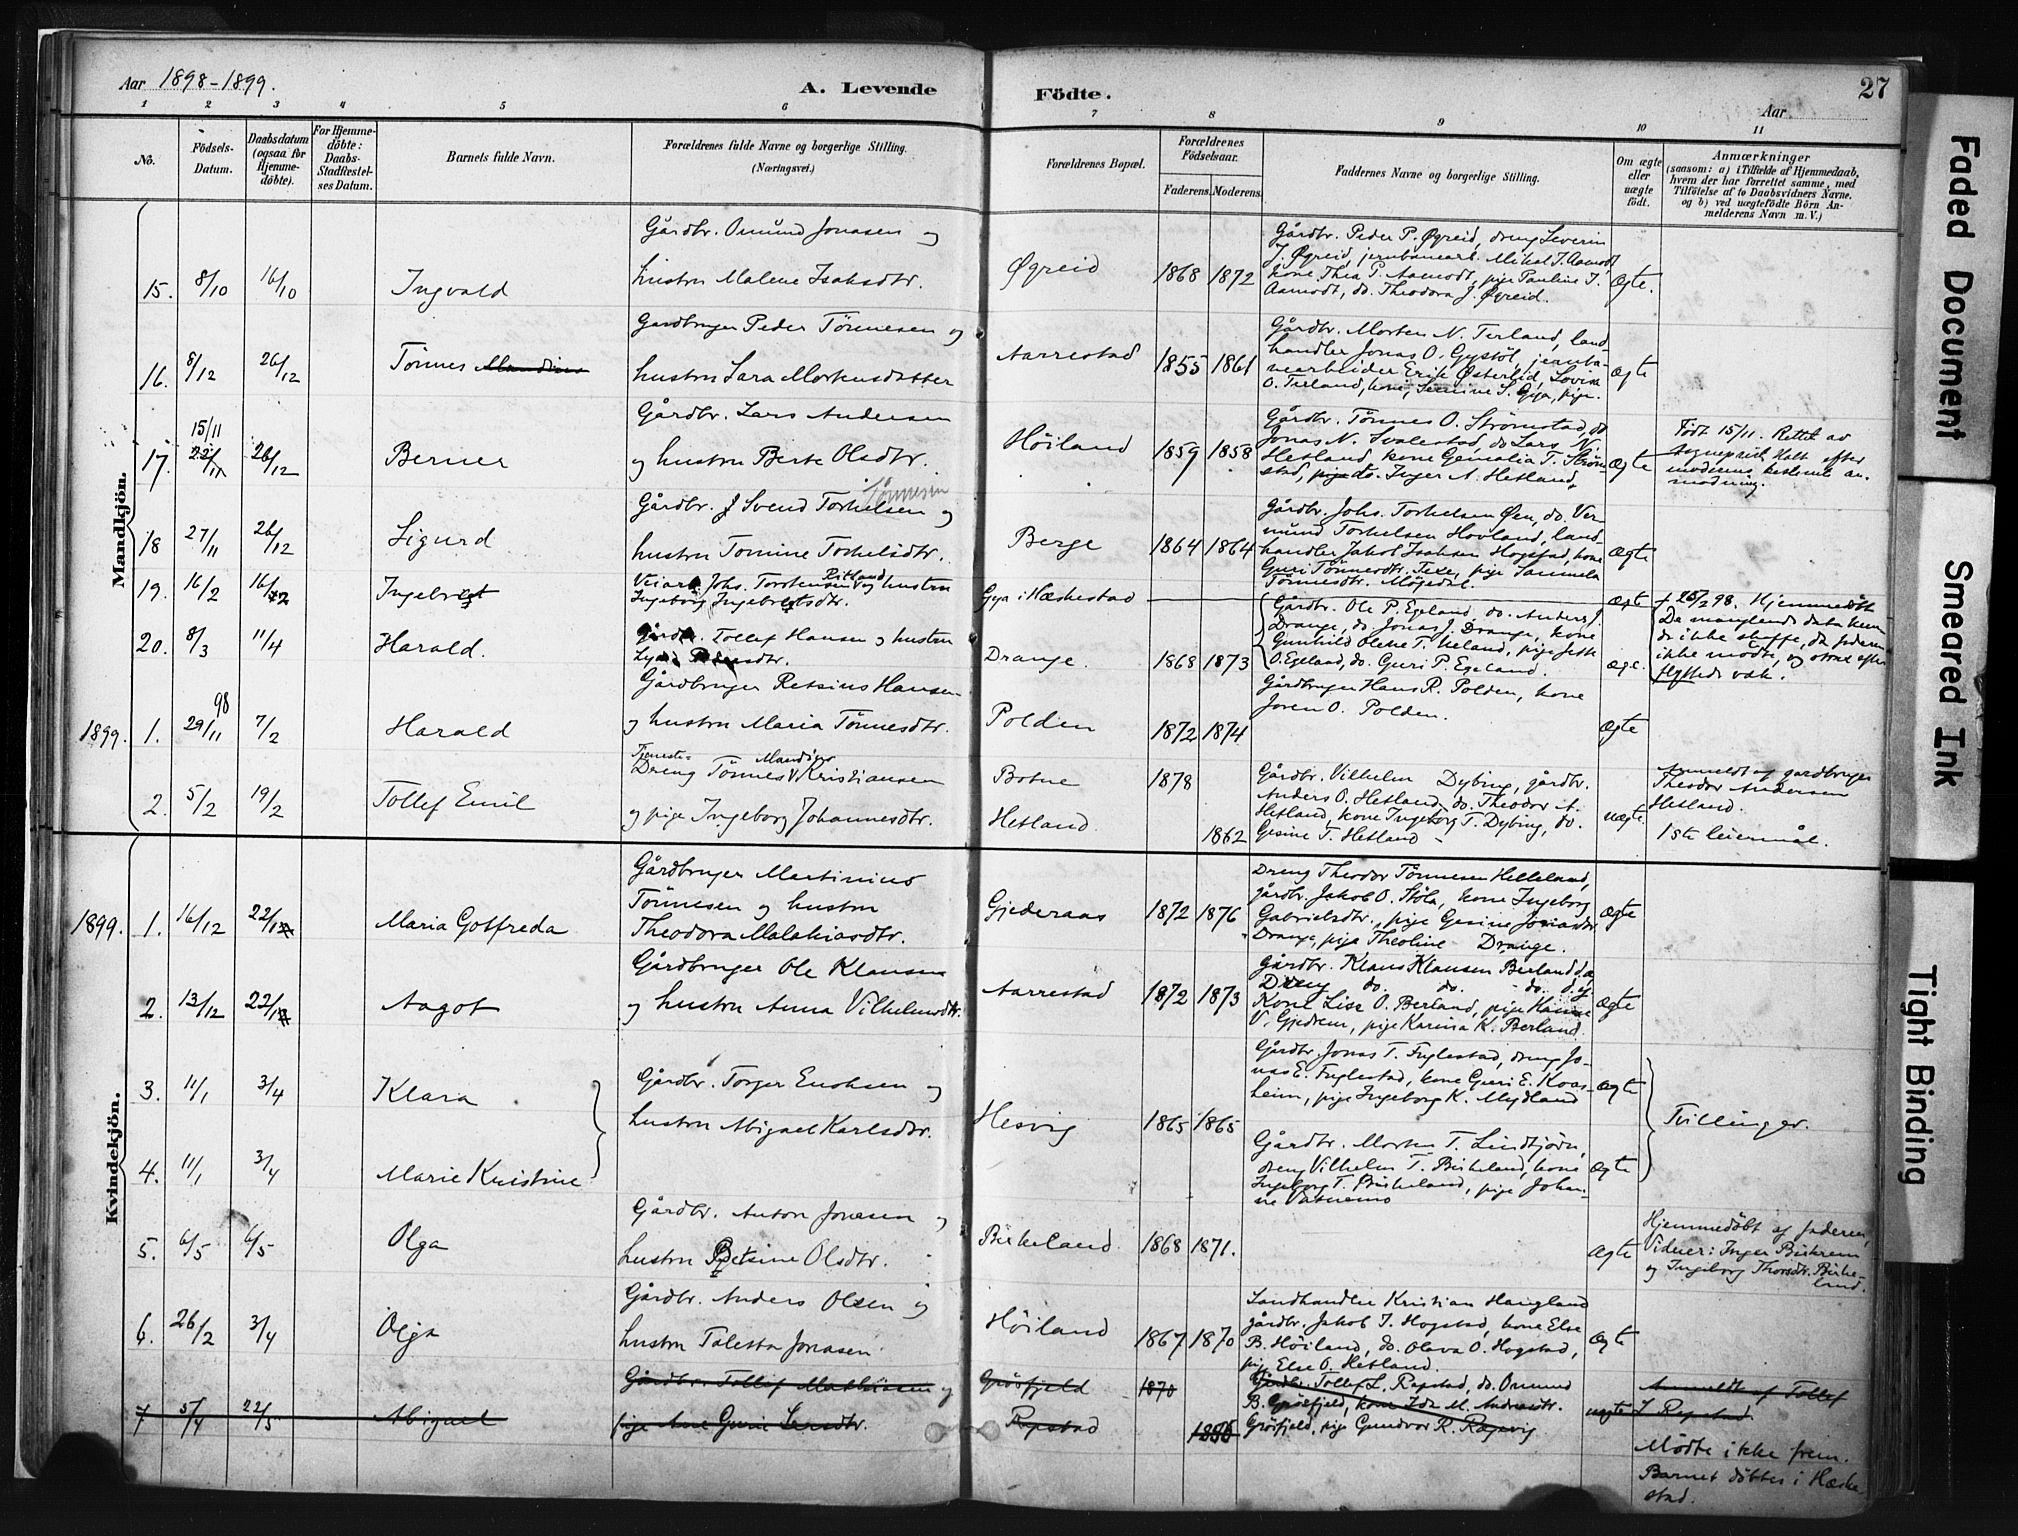 Aar 1898-1899.
A. Levende Födte.
Aar
27
1 2 3 4 5 6 7 8 9 10 11
No.
Födsels-Datum.
Daabsdatum (ogsaa for Hjemme-döbte).
For Hjemme-döbte: Daabs-Stadfæstel-ses Datum.
Barnets fulde Navn.
Forældrenes fulde Navne og borgerlige Stilling.
(Næringsvei.)
Forældrenes Bopæl.
Forældrenes Födselsaar.
Faderens. Moderens.
Faddernes Navne og borgerlige Stilling.
Om ægte eller uægte födt.
Anmærkninger
(saasom: a) i Tilfælde af Hjemmedaab, hvem der har forrettet samme, med Tilföielse af to Daabsvidners Navne, og b) ved uægtefödte Börn An-melderens Navn m. V.)
Mandkjön.
15. 8/10 16/10 Ingvald
Gårdbr. Omund Jonasen og
hustru Malene Isaksdtr.
Øgreid 1868 1872
Gårdbr. Peder P. Øgreid, dreng Severin
J. Øgreid, jernbanearb. Mikal T. Aamodt,
kone Thea P. Aamodt, pige Pauline T.
Aamodt, do. Theodora J. Øgreid.
Ægte.
16. 8/12 26/12 Tönnes Mandius
Gardbruger Peder Tönnesen og
hustru Sara Mortensdatter
Aarrestad 1855 1861
Gårdbr. Morten N. Terland, land-
handler Jonas O. Gystöl, jernba-
nearbeider Erik Østerlid, Lovise
O. Terland, kone, Semine S. Gya, pige.
Ægte
17. 15/11 22/11 26/12 Berner
Gårdbr. Lars Andersen
og hustru Berte Olsdtr.
Höiland 1859 1858
Gårdbr. Tönnes O. Strömstad, do
Jonas N. Svalestad, do Lars N.
Hetland, kone Gemalia T. Ström-
stad, pige do. Inger A. Hetland.
Ægte
Födt 15/11. Rettet av
sogneprest Helt efter
moderens bestemte an-
modning.
18 27/11 26/12 Sigurd
Tönnesen
Gårdbr. J Svend Torkelsen og
hustru Tomine Torkelsdtr.
Berge 1864 1864
Gårdbr. Johs. Torkelsen Øen, do. Ver-
mund Torkelsen Hovland, land-
handler Jakob Isaksen Hogstad, kone
Guri Tönnesdtr. Teke, pige Samuela
Tönnesdtr. Möjedal.
Ægte
19. 16/2 16/2 Ingebret
Johs. Torstensen Ritland og hustru
Ingeborg Ingebretsdtr.
Gya i Heskestad
ægte
20. 8/3 11/4 Harald.
Gårdbr. Tollef Hansen og hustru
Drange. 1868 1873
Gårdbr. Ole P. Egeland do. Anders J.
Drange, do Jonas J. Drange, kone
Gunhild Olene T. Ueland, pige Jette
O. Egeland, do. Guri P. Egeland.
ægte.
+ 26/2 98. Hjemmedöbt
De manglende data kun-
de ikke skaffe, da faderen
ikke mödte, og strax efter
flyttede væk.
1899. 1. 29/11 98 7/2 Harald
Gårdbruger Retsius Hansen
og hustru Maria Tönnesdtr.
Polden 1872 1874
Gårdbruger Hans R. Polden, kone
Joren O. Polden.
Ægte
2. 5/2 19/2 Tollef Emil
Tjeneste-
Dreng Tönnes Mandius Kristiansen
og pige Ingeborg Johannesdtr.
Botne 1878
Hetland. 1862
Gårdbr. Vilhelm Dybing, gårdbr.
Anders O. Hetland, do. Theodor A.
Hetland, kone Ingeborg T. Dybing, do.
Gesine T. Hetland -
uægte.
Anmeldt af gardbruger
Theodor Andersen
Hetland.
1ste leiermål.
Kvindekjön.
1899. 1. 16/12 22/1 Maria Gotfreda
Gårdbruger Martinius
Tönnesen og hustru
Theodora Malakiasdtr.
Gjederaas 1872 1876
Dreng Theodor Tönnesen Helleland,
gårdbr. Jakob O. Stöle, kone Ingeborg
Gabrielsdtr., pige Gesine Jonasdtr.
Drange, pige Theoline - Drange.
Ægte
2. 13/12 22/1 Aagot
Gårdbruger Ole Klausen
og hustru Anna Vilhelmsdtr.
Aarrestad 1872 1873
Gårdbr. Klaus Klausen Berland d.æ
Dreng do. do. do. d.y.
Kone Lise O. Berland, pige Hanne
V. Gjedrem, pige Karina K. Berland.
Ægte
3. 11/1 3/4 Klara
Gårdbr. Torger Enoksen og
hustru Abigael Karlsdtr.
Hesvig 1865 1865
Gårdbr. Jonas T. Fuglestad, dreng Jo-
nas E. Fuglestad, kone Guri E. Koas-
heim, pige Ingeborg K. Mydland
Ægte
Tvillinger.
4. 11/1 3/4 Marie Kristine
Gårdbr. Morten T. Lindtjörn,
dreng Vilhelm T. Birkeland, kone
Ingeborg T. Birkeland, pige Johan-
ne Vatnemo
Ægte
5. 6/5 6/5 Olga
Gårdbr. Anton Jonasen og
hustru Betsine Olsdtr.
Birkeland. 1868 1871.
Ægte
Hjemmedöbt af faderen,
Vidner: Inger Birkrem
og Ingeborg Thorsdtr. Birke-
land.
6. 26/2 3/4 Olga
Gårdbr. Anders Olsen og
hustru Taletta Jonasen
Höiland 1867 1870
Landhandler Kristian Haugland
gårdbr. Jakob I. Hogstad, kone Else
B. Höiland, do. Olava O. Hogstad,
pige Else O. Hetland.
Ægte
7 5/4 22/5 Abigael
Gårdbr. Tollef Mathiassen og
pige Ane Guri Larsdtr.
Grösfjeld 1870
Repstad
Gårdbr. Tollef L. Repstad, do. Omund
B. Grösfjeld, kone Ida M. Andreasdtr.
Grösfjeld, pige Gundvor R.
uægte
Anmeldt af Tollef
L Repstad
Mödte ikke frem.
Barnet döbtes i Heske-
stad.
Faded Document
Smeared Ink
Tight Binding